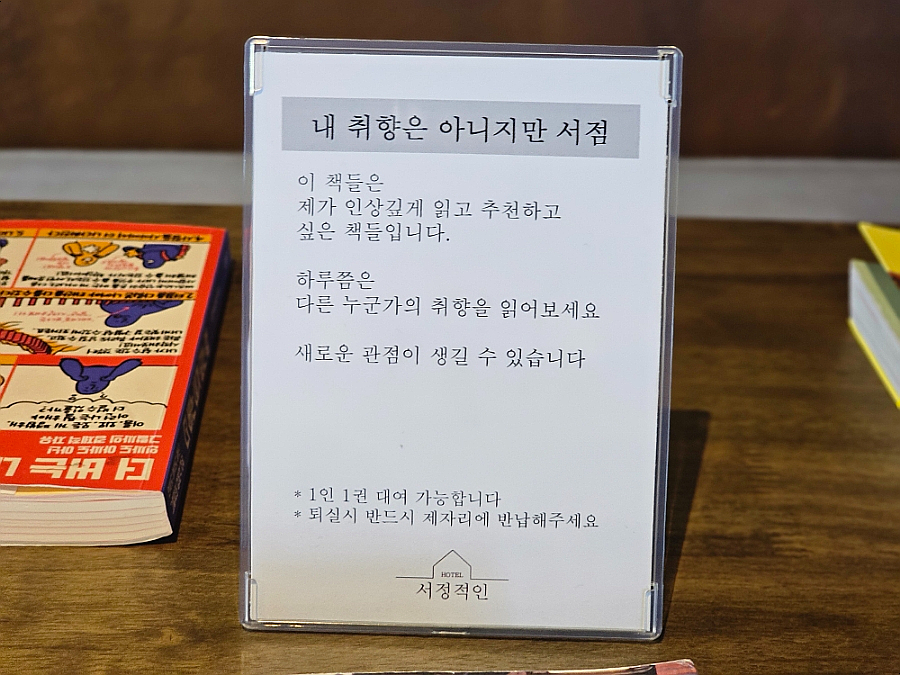 내 취향은 아니지만 서점
이 책들은
제가 인상깊게 읽고 추천하고
싶은 책들입니다.
하루쯤은
다른 누군가의 취향을 읽어보세요
새로운 관점이 생길 수 있습니다
* 1인 1권 대여 가능합니다
* 퇴실시 반드시 제자리에 반납해주세요
HOTEL
서정적인
더 버는 내